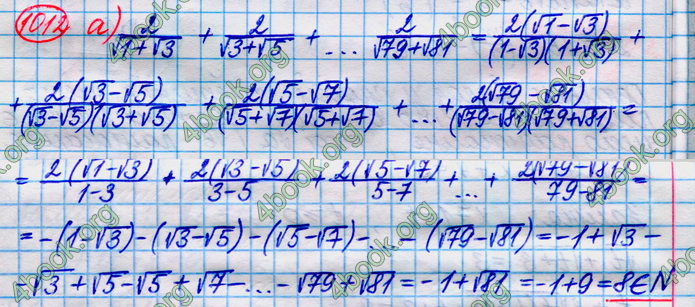 1012 а) 2/(√1+√3) + 2/(√3+√5) + ... 2/(√79+√81) = 2(√1-√3)/((1-√3)(1+√3)) +
+ 2(√3-√5)/((√3-√5)(√3+√5)) + 2(√5-√7)/((√5+√7)(√5+√7)) + ... + 2(√79-√81)/((√79-√81)(√79+√81)) =
= 2(√1-√3)/(1-3) + 2(√3-√5)/(3-5) + 2(√5-√7)/(5-7) + ... + 2(√79-√81)/(79-81) =
= -(1-√3)-(√3-√5)-(√5-√7)-...-(√79-√81) = -1+√3-
-√3+√5-√5+√7-...-√79+√81 = -1+√81 = -1+9 = 8∈N
4book.org
4book.org
4book.org
4book.org
4book.org
4book.org